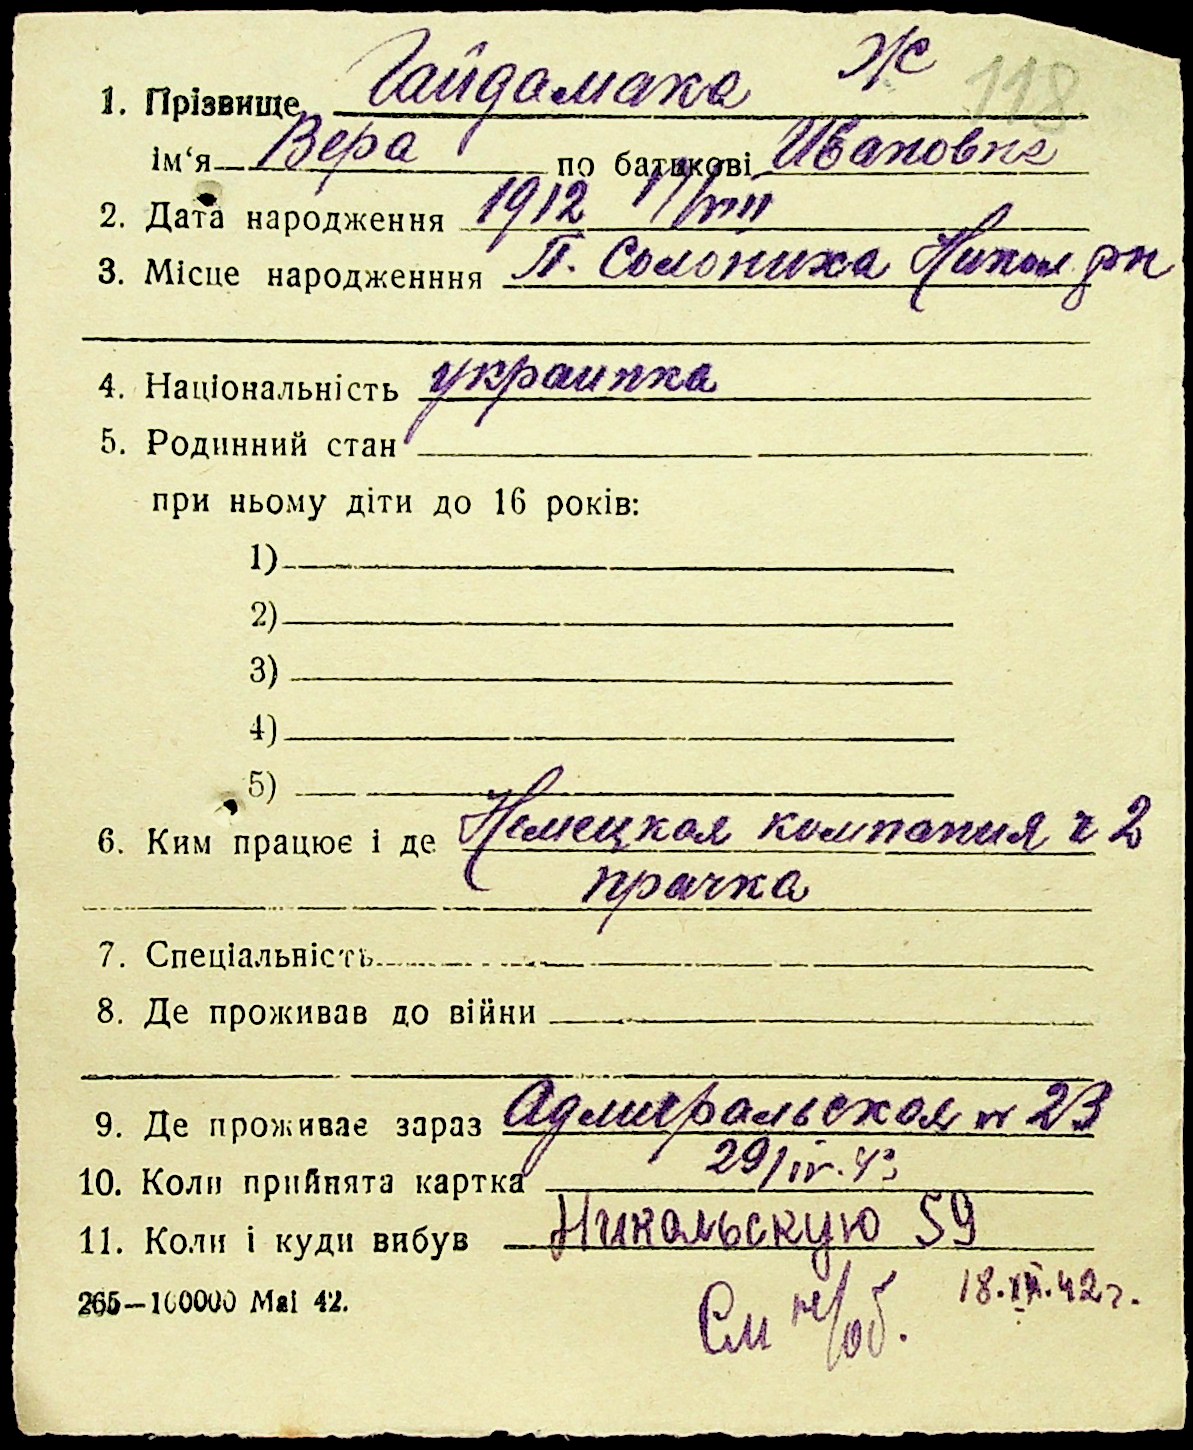 Ж 118
1. Прізвище Гайдамака
ім‘я Вера по батькові Ивановна
2. Дата народження 1912 17/VIII
3. Місце народженння П. Солониха Никол. рн
4. Національність украинка
5. Родинний стан
при ньому діти до 16 років:
1)
2)
3)
4)
5)
6. Ким працює і де Немецкая компания ч 2
прачка
7. Спеціальність
8. Де проживав до війни
9. Де проживає зараз Адмиральская № 23
10. Коли прийнята картка 29/IV.43
11. Коли і куди вибув Никольскую 59
265—100000 Маі 42. 18.XII.42 г.
См н/об.